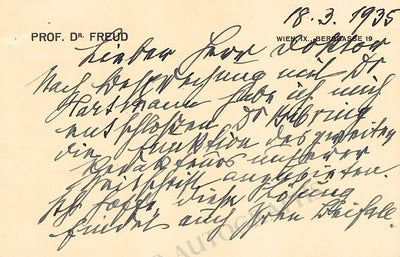 18.3.1935
PROF. DR. FREUD
WIEN, IX., BERGGASSE 19
Lieber Herr Doktor
Nach Besprechung mit Dr.
Hartmann habe ich mich
entschlossen Dr Bibring
die Funktion des zweiten
Redakteurs unserer
Zeitschrift anzubieten.
Ich hoffe, diese Lösung
findet auch Ihren Beifall.